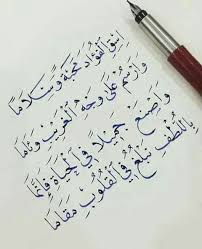 اِسْقِ الْفُؤَادَ مَحَبَّةً وَسَلَامًا
وَارْسُمْ عَلَى وَجْهِ الْغَرِيبِ وِئَامًا
وَاصْنَعْ جَمِيلًا فِي الْحَيَاةِ فَإِنَّمَا
بِاللُّطْفِ تَبْلُغُ فِي الْقُلُوبِ مَقَامَا